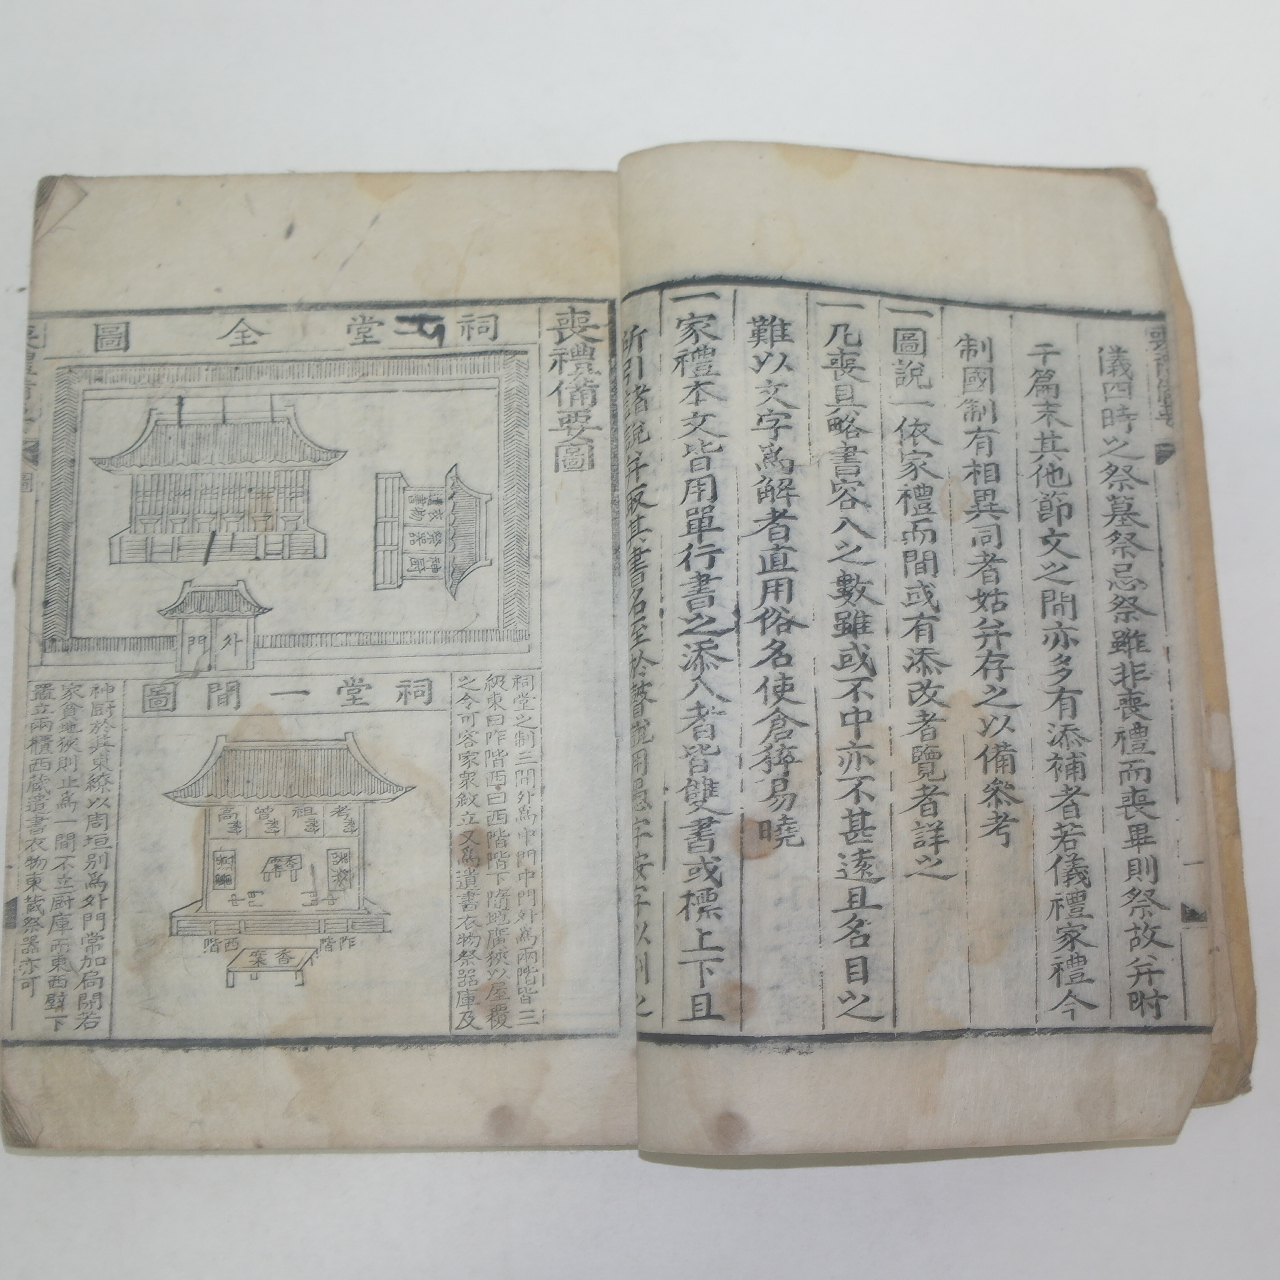 儀四時之祭墓祭忌祭雖非喪禮而喪畢則祭故幷附
于篇末其他節文之間亦多有添補者若儀禮家禮今
制國制有相異同者姑幷存之以備參考
一圖說一依家禮而間或有添改者覽者詳之
一凡喪具略書容入之數雖或不中亦不甚遠且名目以
難以文字爲解者直用俗名使倉猝易曉
一家禮本文皆用單行書之添入者皆雙書或標上下且
所引諸說幷取其書名至於瞽說用愚字按字以別之
喪禮備要圖
祠堂全圖
外門
祠堂之制三間外爲中門中門外爲兩階皆三
級東曰阼階西曰西階階下隨地廣狹以屋覆
之令可容家衆敍立又爲遺書衣物祭器庫及
祠堂一間圖
考
祖
曾
高
阼階
西階
香案
神廚於其東繚以周垣別爲外門常加扃閉若
家貧地狹則止爲一間不立廚庫而東西壁下
置立兩櫃西藏遺書衣物東藏祭器亦可